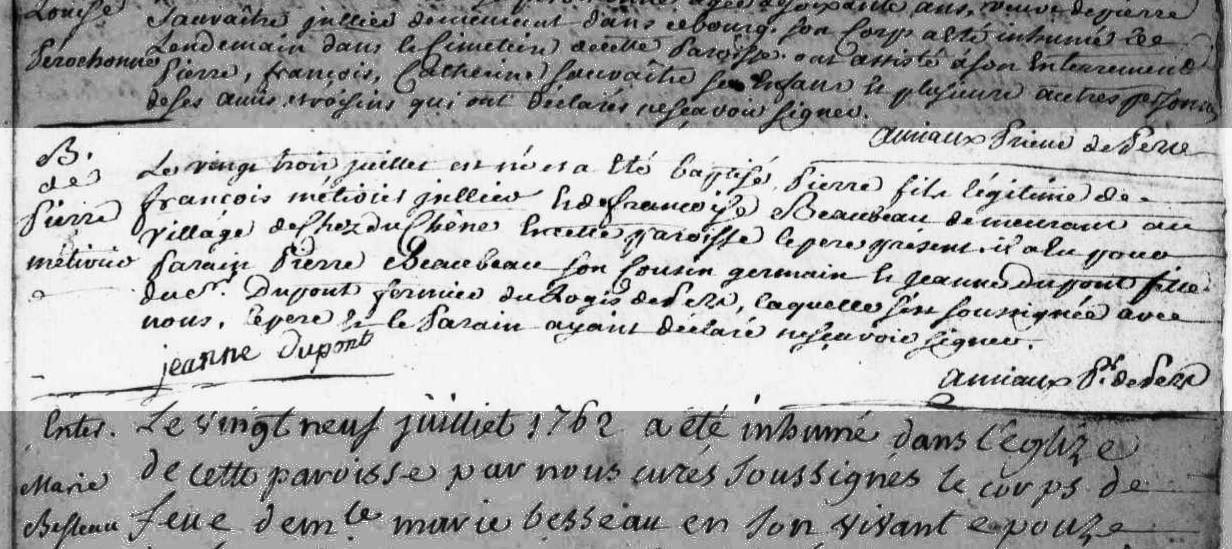 Louise
sauvaître jullien demeurant dans ce bourg. son corps a été inhumé le
Perochonne Lendemain dans le Cimetiere de cette Paroisse. ont assisté à son Enterrement
Pierre, françois, Catherine sauvaître ses Enfans et plusieurs autres personnes
de ses amis et voisins qui ont déclarés ne sçavoir signer.
amiaux Prieur de Pere
B.
de
Pierre
métivier
Le vingt trois juillet est né et a été baptisé Pierre fils légitime de
françois métivier jullien et de françoise Beaubeau demeurant au
village de Chez du Chêne en cette paroisse le pere présent. il a eu pour
Parain Pierre Beaubeau son Cousin germain et jeanne dupont fille
du Sr. Dupont fermier du Logis de Pere, laquelle s'est soussignée avec
nous. le pere et le Parain ayant déclaré ne sçavoir signer.
jeanne dupont
amiaux Pr. de Pere
Enter.
Marie
Besseau
Le vingt neuf juilliet 1762 a été inhumé dans l'eglize
de cette paroisse par nous curés soussignés le corps de
feue demlle marie besseau en son vivant epouze